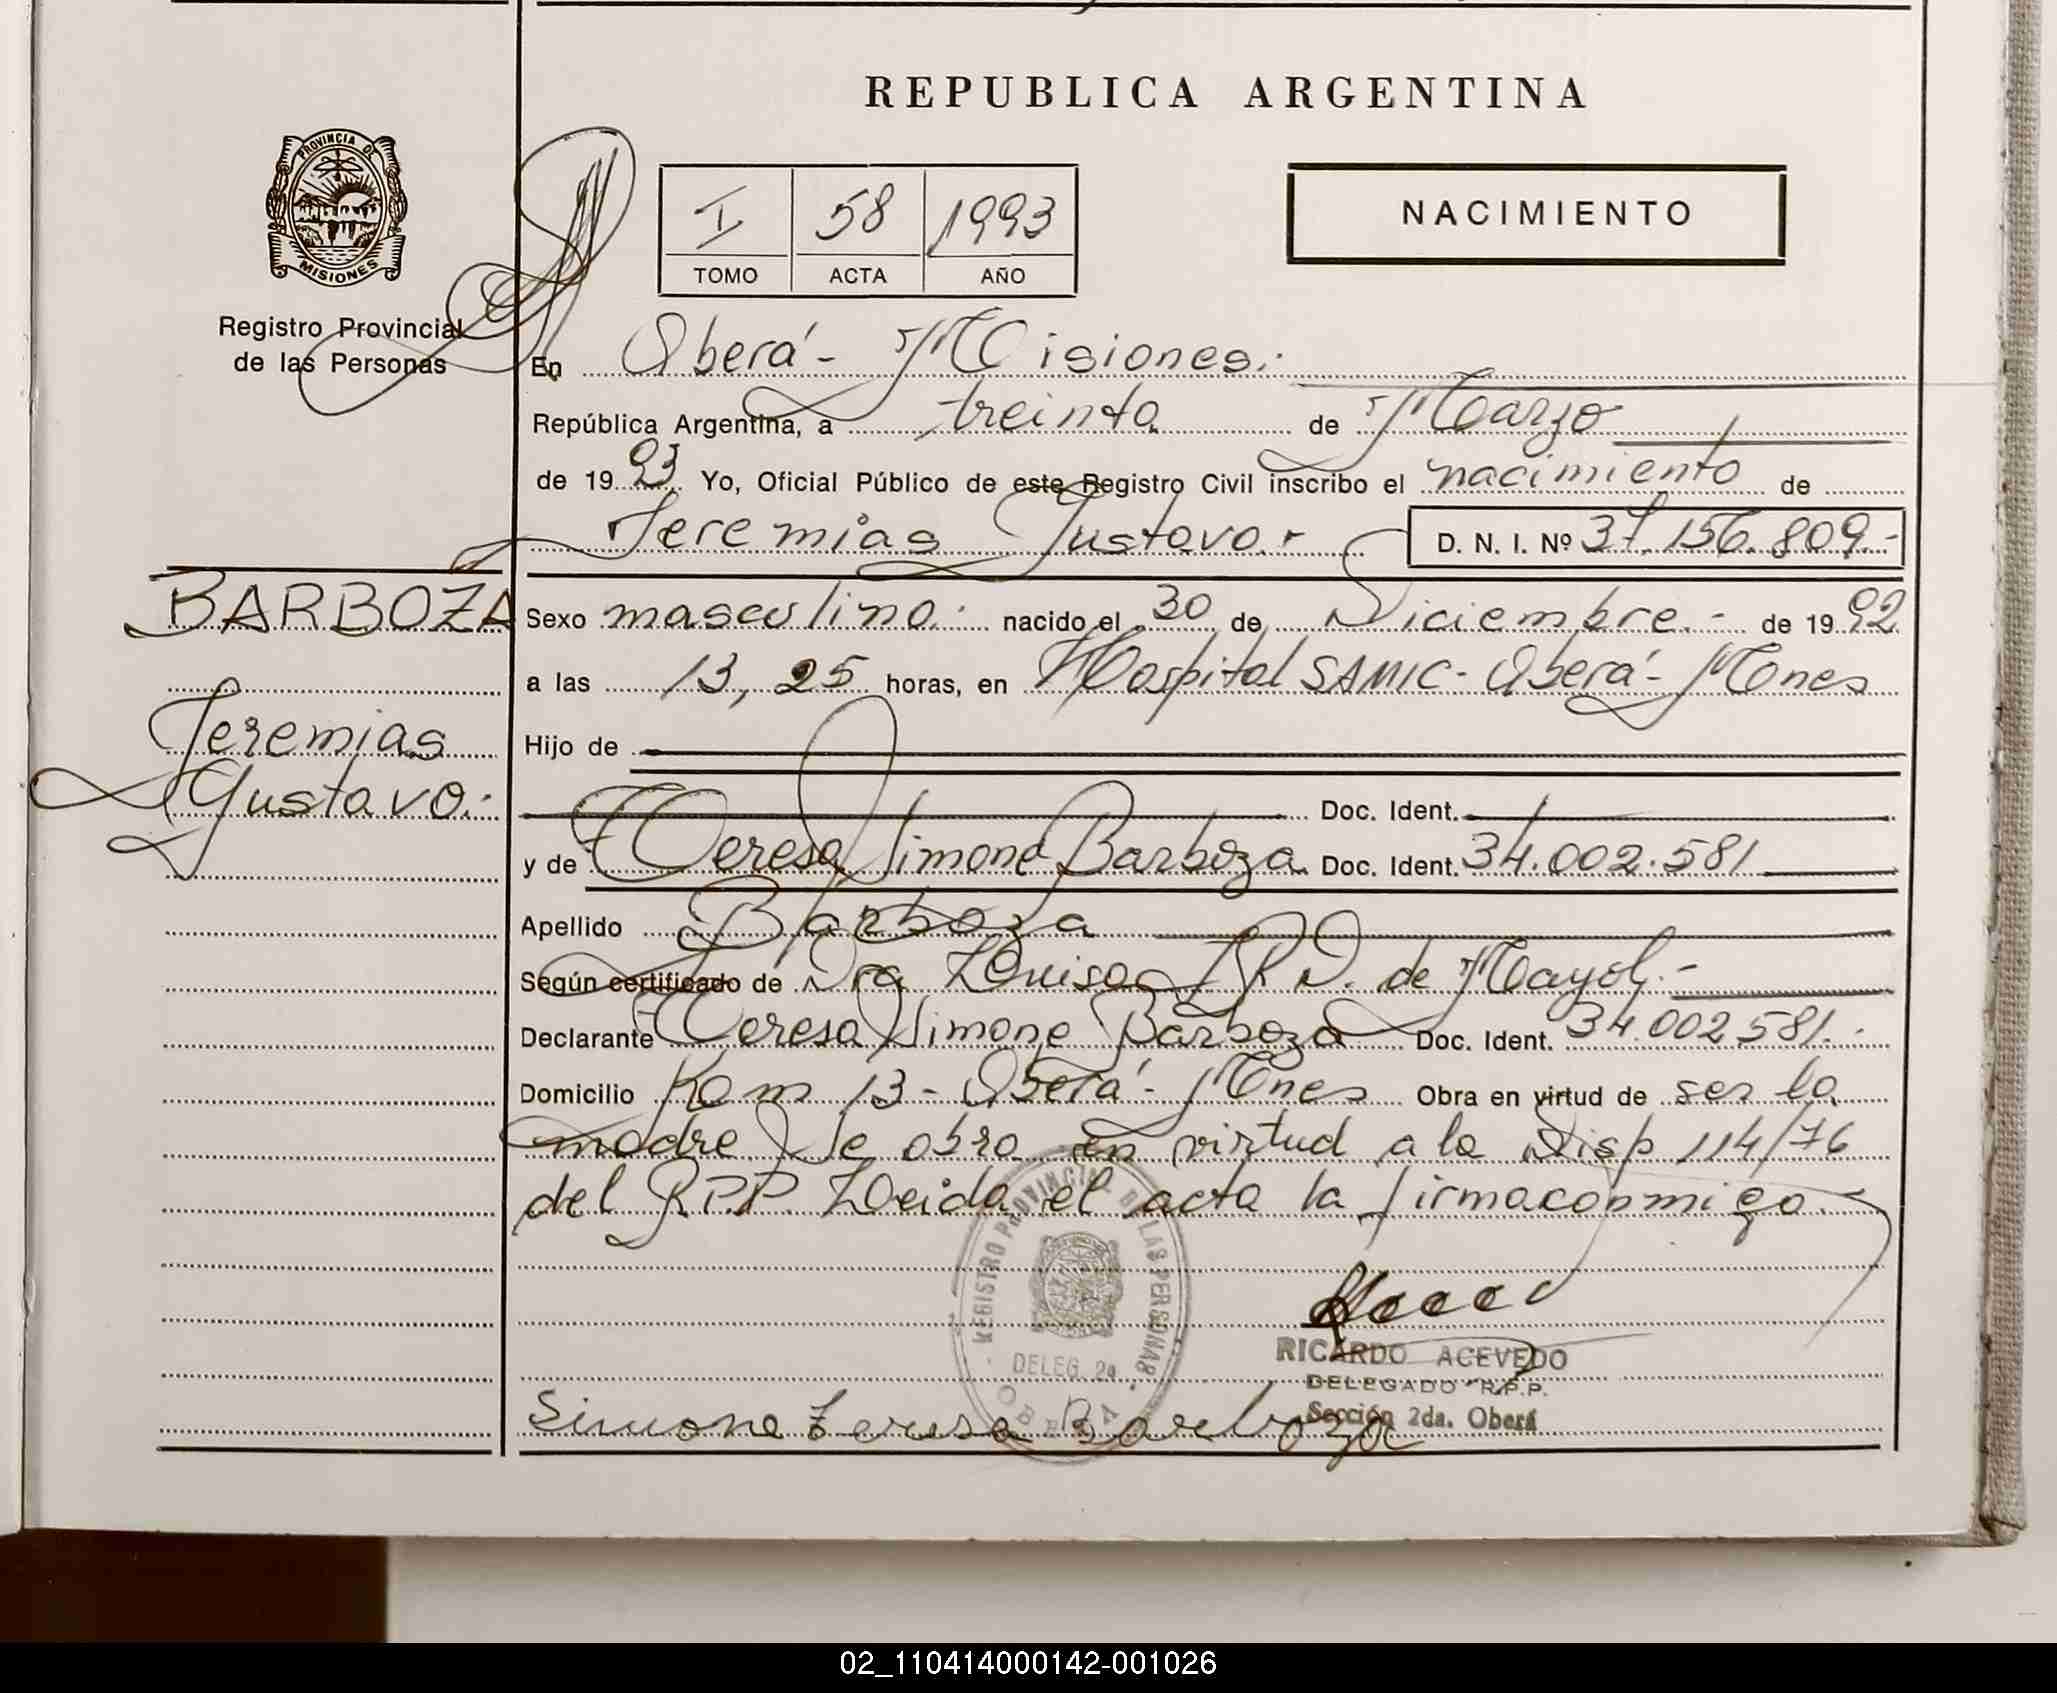 REPUBLICA ARGENTINA
PROVINCIA DE
MISIONES
Registro Provincial
de las Personas
I 58 1993
TOMO ACTA AÑO
NACIMIENTO
En Oberá - Misiones.
República Argentina, a treinta de Marzo
de 19 93 Yo, Oficial Público de este Registro Civil inscribo el nacimiento de
Jeremias Gustavo.- D. N. I. Nº 37.156.809.-
BARBOZA
Jeremias
Gustavo.-
Sexo masculino.- nacido el 30 de Diciembre.- de 19 92
a las 13, 25 horas, en Hospital SAMIC - Oberá - Mnes
Hijo de
Doc. Ident.
y de Teresa Simone Barboza Doc. Ident. 34.002.581
Apellido Barboza
Según certificado de Dra Luisa R D. de Mayol.-
Declarante Teresa Simone Barboza Doc. Ident. 34.002581.-
Domicilio Kom 13 - Oberá - Mnes Obra en virtud de ser la
madre Se obra en virtud a la Disp 114/76
del R.P.P. Leida el acta la firma conmigo.-
REGISTRO PROVINCIAL DE LAS PERSONAS
DELEG. 2a
OBERA
RICARDO ACEVEDO
DELEGADO R.P.P.
Sección 2da. Oberá
Simone Teresa Barboza
02_110414000142-001026